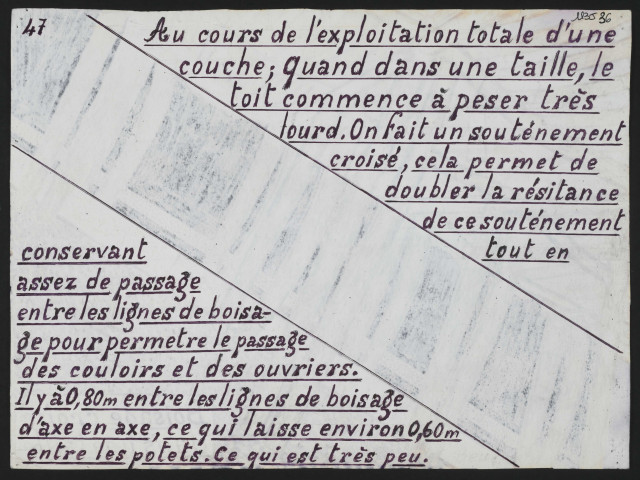 47
1935 36
Au cours de l'exploitation totale d'une
couche; quand dans une taille, le
toit commence à peser très
lourd. On fait un souténement
croisé, cela permet de
doubler la résitance
de ce souténement
tout en
conservant
assez de passage
entre les lignes de boisa-
ge pour permetre le passage
des couloirs et des ouvriers.
Il y à 0,80m entre les lignes de boisage
d'axe en axe, ce qui laisse environ 0,60m
entre les potets. Ce qui est très peu.